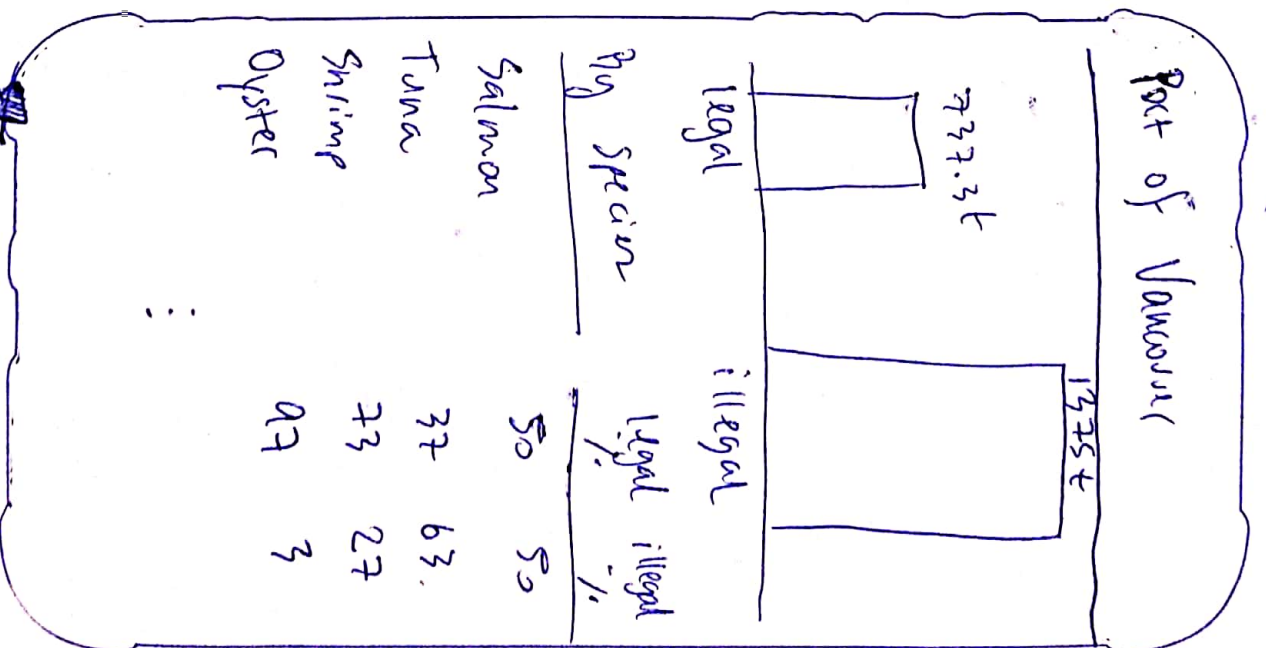 Port of Vancouver
737.3t 1375t
legal illegal
By Species Legal % illegal %
Salmon 50 50
Tuna 37 63
Shrimp 73 27
Oyster 97 3
...